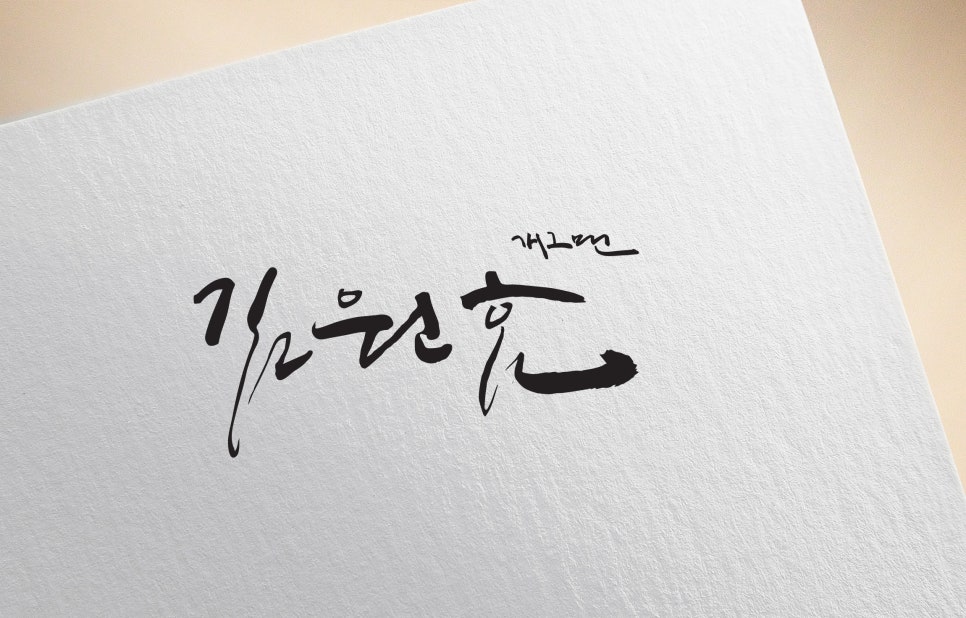 개그맨
김원훈